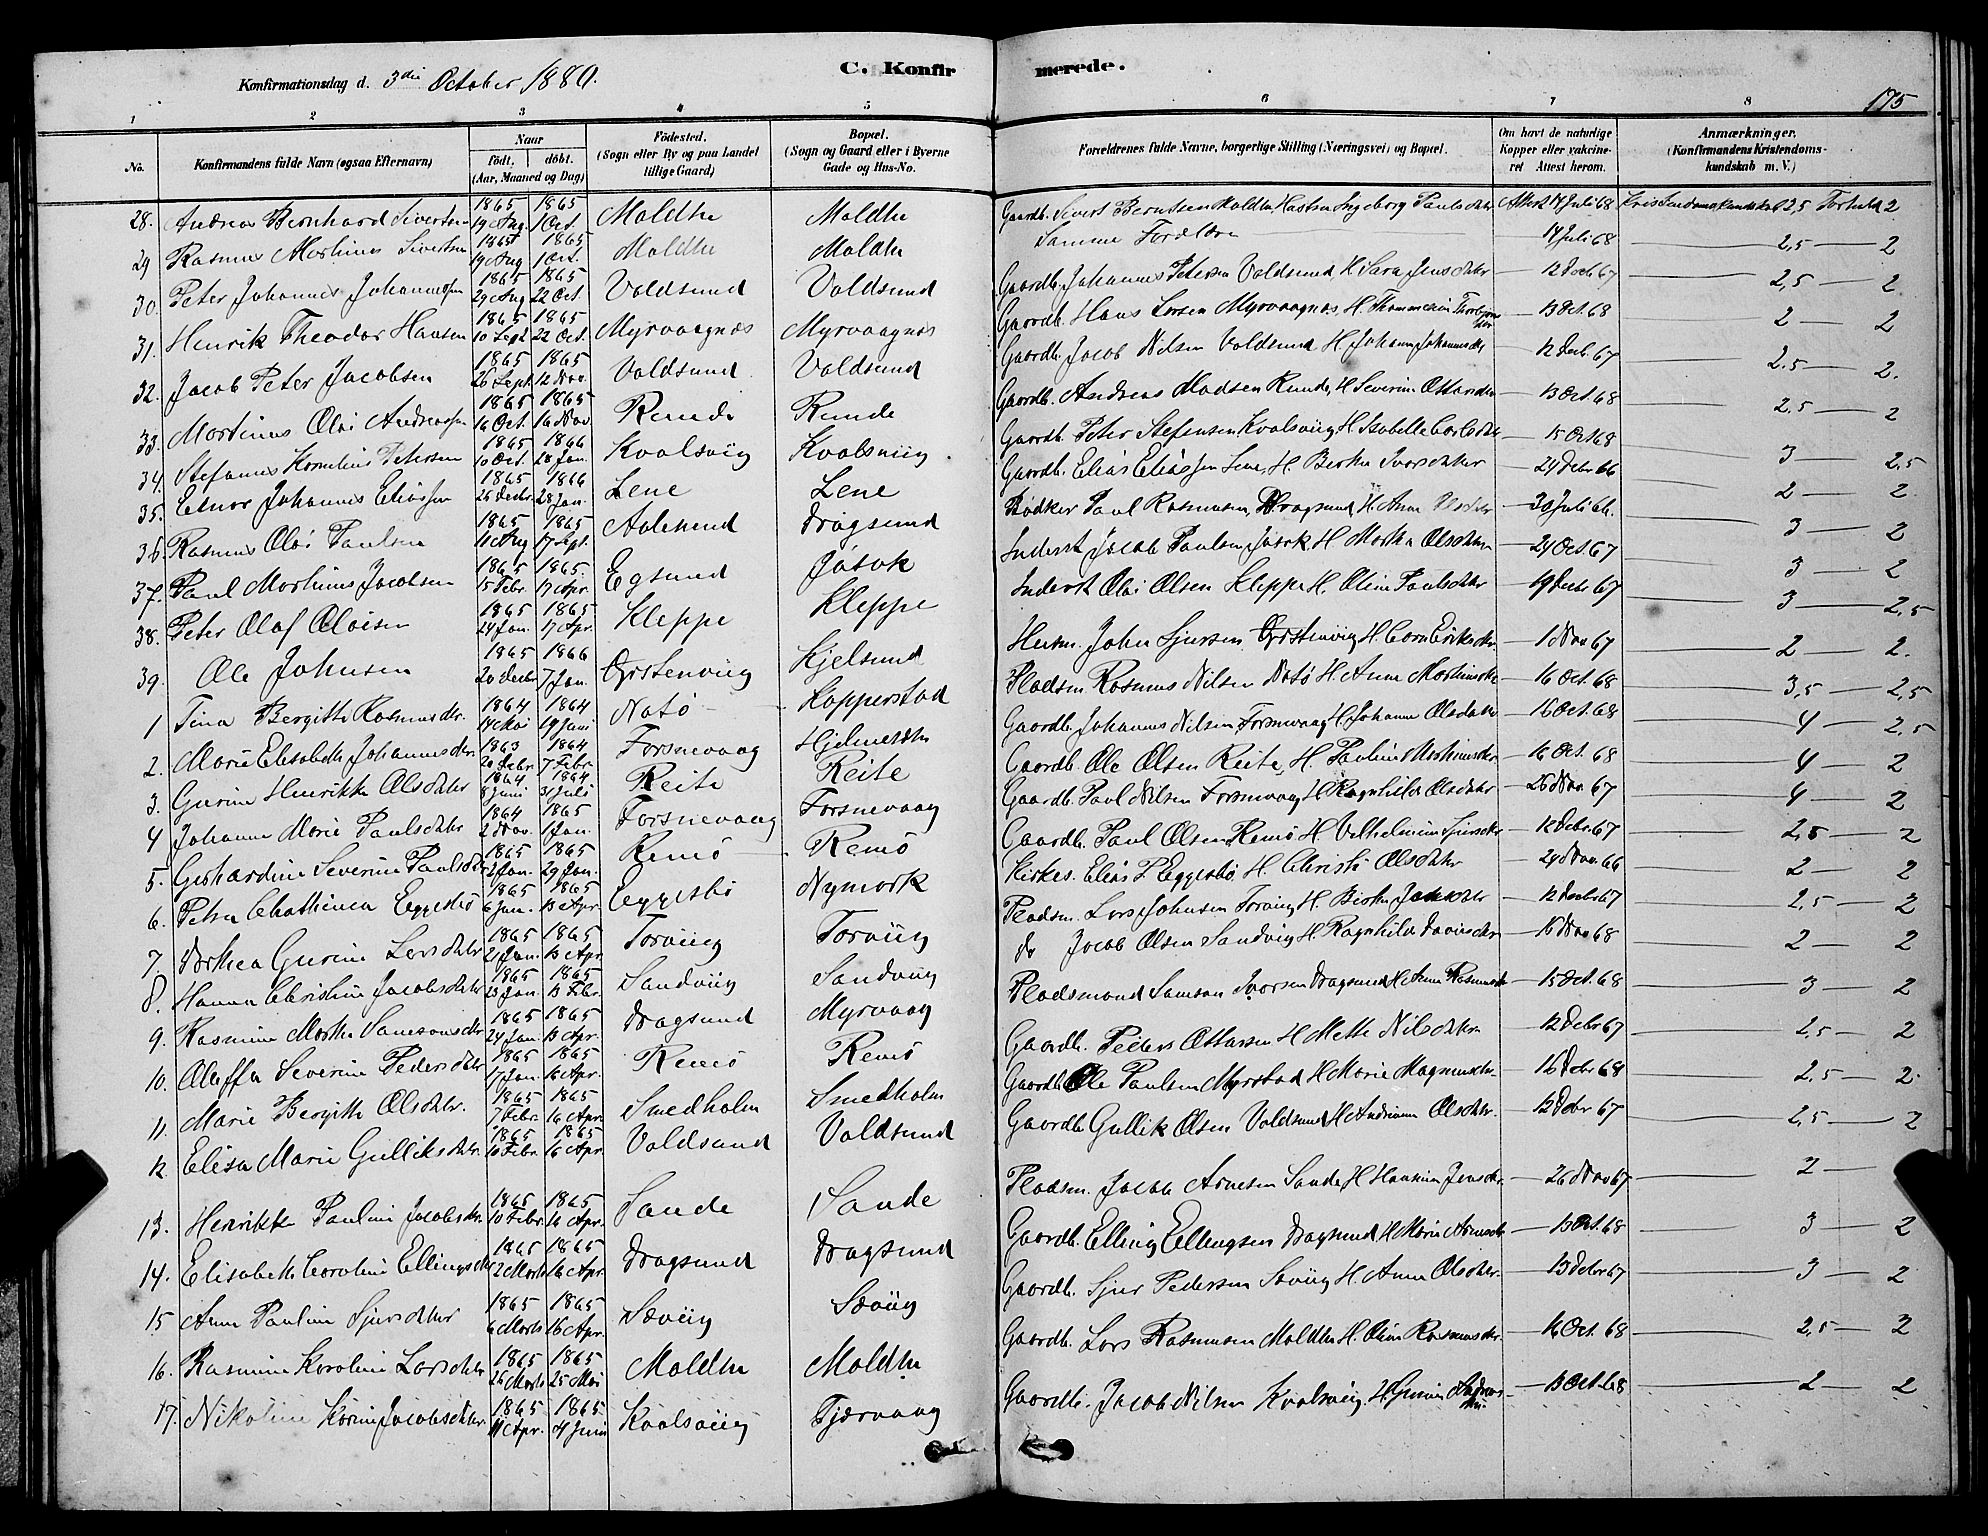 Konfirmationsdag d. 3die October 1880.
C. Konfirmerede.
175
1 2 3 4 5 6 7 8
No.
Konfirmandens fulde Navn (ogsaa Efternavn)
Naar
født, døbt.
(Aar, Maaned og Dag)
Fødested.
(Sogn eller By og paa Landet
tillige Gaard)
Bopæl.
(Sogn og Gaard eller i Byerne
Gade og Hus-No.
Forældrenes fulde Navne, borgerlige Stilling (Næringsvei) og Bopæl.
Om havt de naturlige
Kopper eller vakcine-
ret Attest herom.
Anmærkninger,
(Konfirmandens Kristendoms-
kundskab m. V.)
28. Andreas Bernhard Sivertsen 1865 19 Aug. 1865 1 Oct. Moldtu Moldtu Gaardb. Sivert Berntsen Moldtu Hustru Ingeborg Paulsdtr Attest 14 Juli 68 Kristendomskundskab 2,5 Forhold 2
29 Rasmus Martinus Sivertsen 1865 19 Aug 1865 1 Oct. Moldtu Moldtu Samme Forældre 14 Juli 68 2,5 — 2
30. Peter Johannes Johannessen 1865 29 Aug 1865 22 Oct. Voldsund Voldsund Gaardb. Johannes Petersen Voldsund H Sara Jensdtr — 12 Decb 67 2,5 — 2
31. Henrik Theodor Hansen 1865 10 Sept 1865 22 Oct. Myrvaagnæs Myrvaagnæs Gaardb. Hans Larsen Myrvaagnæs, H. — 13 Oct. 68 2 — 2
32. Jacob Peter Jacobsen 1865 26 Sept. 1865 12 Nov. Voldsund Voldsund Gaardb. Jacob Nilsen Voldsund H Johanne Johannesdtr — 12 Decb. 67 2.5 — 2.
33. Martinus Olai Andreassen 1865 16 Oct. 1865 16 Nov Runde Runde Gaardb. Andreas Madsen Runde, H Severine Ottarsdtr — 13 Oct. 68 2,5 — 2
34. Stefanus Kornelius Petersen 1865 10 Oct. 1866 28 Jan. Kvalsviig Kvalsviig Gaardb. Peter Stefensen Kvalsviig H. Isabelle Carlsdtr — 15 Oct 68 3 — 2,5
35. Elnor Johannes Eliassen 1865 26 Decbr. 1866 28 Jan. Lene Lene Gaardb. Elias Eliassen Lene, H. Berthe Ivarsdtr — 24 Debr 66 2 — 2.
36. Rasmus Olai Paulsen 1865 11 Aug 1865 17 Sept. Aalesund Dragsund Bødker Paul Rasmussen, Dragsund H. Anne Olsdtr — 30 Juli 66. 3 — 2
37. Paul Martinus Jacobsen 1865 15 Febr. 1865. 17 Apr. Egsund Jøsok Inderst Jacob Paulsen Jøsok H Marthe Olsdtr — 24 Oct. 67 3 — 2
38. Peter Olaf Olaisen 1865 24 Jan. 1865 17 Apr. Kleppe Kleppe Inderst Olai Olsen Kleppe H. Oline Paulsdtr — 19 Decb 67 3 — 2,5
39. Ole Johnsen 1865 20 Decbr 1866 7 Jan. Ørstenviig Kjelsund Husm. John Sjursen Ørstenviig H. Corn Eriksdtr — 1 Nov 67 2 — 2.
1 Tina Bergitte Rasmusdtr. 1864 14 Mai 1864 19 Juni Notø Kopperstad Pladsm Rasmus Nilsen Notø H Anne Martinusdtr — 16 Oct. 68 3,5 — 2,5
2. Marie Elisabeth Johannesdtr 1863 20 Debr. 1864 7 Febr. Forsnevaag Hjelmesæter Gaardb. Johannes Nilsen Forsnevaag H Johanne Olsdatter — 16 Oct. 68 4 — 2,5
3. Gurine Henrikke Olsdtr 1864 8 Juni 1864 31 Juli Reite Reite Gaardb. Ole Olsen Reite, H. Pauline Martinusdtr — 16 Oct. 68 4 — 2
4 Johanne Marie Paulsdtr 1864 2 Nov. 1865 1 Jan. Forsnevaag Forsnevaag Gaardb. Paul Nilsen Forsnevaag H Ragnhild Olsdtr — 26 Nov 67 4 — 2
5. Gerhardine Severine Paulsdtr 1865 2 Jan. 1865 29 Jan. Remø Remø Gaardb. Paul Olsen Remø H. Vilhelmine Sjursdtr — 12 Debr 67 2,5 — 2
6. Petra Chathinca Eggesbø 1865 6 Jan. 1865 13 Apr. Eggesbø Nymork Kirkes. Elias P. Eggesbø H. Christi Olsdtr — 24 Nov. 66 2 — 2
7. Dorthea Gurine Larsdtr 1865 21 Jan. 1865 13 Apr. Torviig Torviig Pladsm. Lars Johnsen Torviig H. Birthe Jensdtr — 12 Decbr 67 2,5 — 2
8. Hanna Christine Jacobsdtr 1865 23 Jan. 1865 13 Febr. Sandviig Sandviig do Jacob Olsen Sandviig H. Ragnhild Davidsdtr — 16 Nov 68 2 — 2
9. Rasmine Marthe Samsonsdtr 1865 24 Jan. 1865 13 Apr. Dragsund Myrvaag Pladsmand Samson Ivarsen Dragsund H. Anne Rasmusdtr — 15 Oct. 68 3 — 2
10. Oluffa Severine Pedersdtr 1865 17 Jan. 1865 16 Apr. Remø Remø Gaardb. Peder Ottarsen H Mette Nilsdtr — 12 Debr 67 2,5 — 2
11. Marie Bergitte Olsdtr. 1865 7 Febr. 1865 16 Apr. Smedholm Smedholm Gaardb Ole Paulsen Myrstad H Marie Magnusdtr — 16 Debr 68 2,5 — 2.
12 Elisa Marie Gulliksdtr 1865 10 Febr. 1865 16 Apr. Voldsund Voldsund Gaardb Gullik Olsen Voldsund H Andrianne Olsdtr. — 12 Debr 67 2,5 — 2
13. Henrikke Pauline Jacobsdtr. 1865 10 Febr. 1865 16 Apr. Sande Sande Pladsm. Jacob Arnesen Sande H Hansine Jensdtr. — 26 Nov 67 2 —
14. Elisabeth Caroline Ellingsdtr 1865 12 Marts 1865 16 Apr. Dragsund Dragsund Gaardb. Elling Ellingsen Dragsund H Marie Arnesdtr — 13 Oct. 68 3 — 2
15 Anne Pauline Sjursdtr 1865 6 Marts 1865 16 Apr. Sæviig Sæviig Gaardb. Sjur Pedersen Sæviig H. Anne Olsdtr. — 13 Debr 67 3 — 2
16. Rasmine Karoline Larsdtr 1865 26 Marts 1865 25 Mai Moldtu Moldtu Gaardb. Lars Rasmussen Moldtu H. Oline Rasmusdtr. — 16 Oct. 68 2,5 — 2
17. Nikoline Karine Jacobsdtr. 1865 11 Apr. 1865. 4 Juni Kvalsviig Tjørvaag Gaardb. Jacob Nilsen Kvalsviig. H Gurine Andreasdtr. — 13 Oct. 68 2 — 2